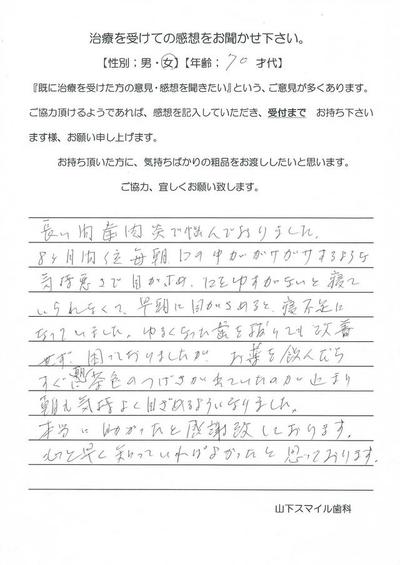 治療を受けての感想をお聞かせ下さい。
【性別：男・女】【年齢：70 才代】
『既に治療を受けた方の意見・感想を聞きたい』という、ご意見が多くあります。
ご協力頂けるようであれば、感想を記入していただき、受付まで お持ち下さい
ます様、お願い申し上げます。
お持ち頂いた方に、気持ちばかりの粗品をお渡ししたいと思います。
ご協力、宜しくお願い致します。
長い間歯肉炎で悩んでおりました。
8ヶ月間位毎朝口の中がガサガサするような
気持悪さで目がさめ、口をゆすがないと寝て
いられなくて、早朝に目がさめると、寝不足に
なっていました。ゆるくなった歯を抜いても改善
せず、困っておりましたが お薬を飲んだら
すぐ茶色のつばきが出ていたのが止まり
朝も気持よく目ざめるようになりました。
本当に助かったと感謝致しております。
もっと早く知っていればよかったと思っております。
山下スマイル歯科